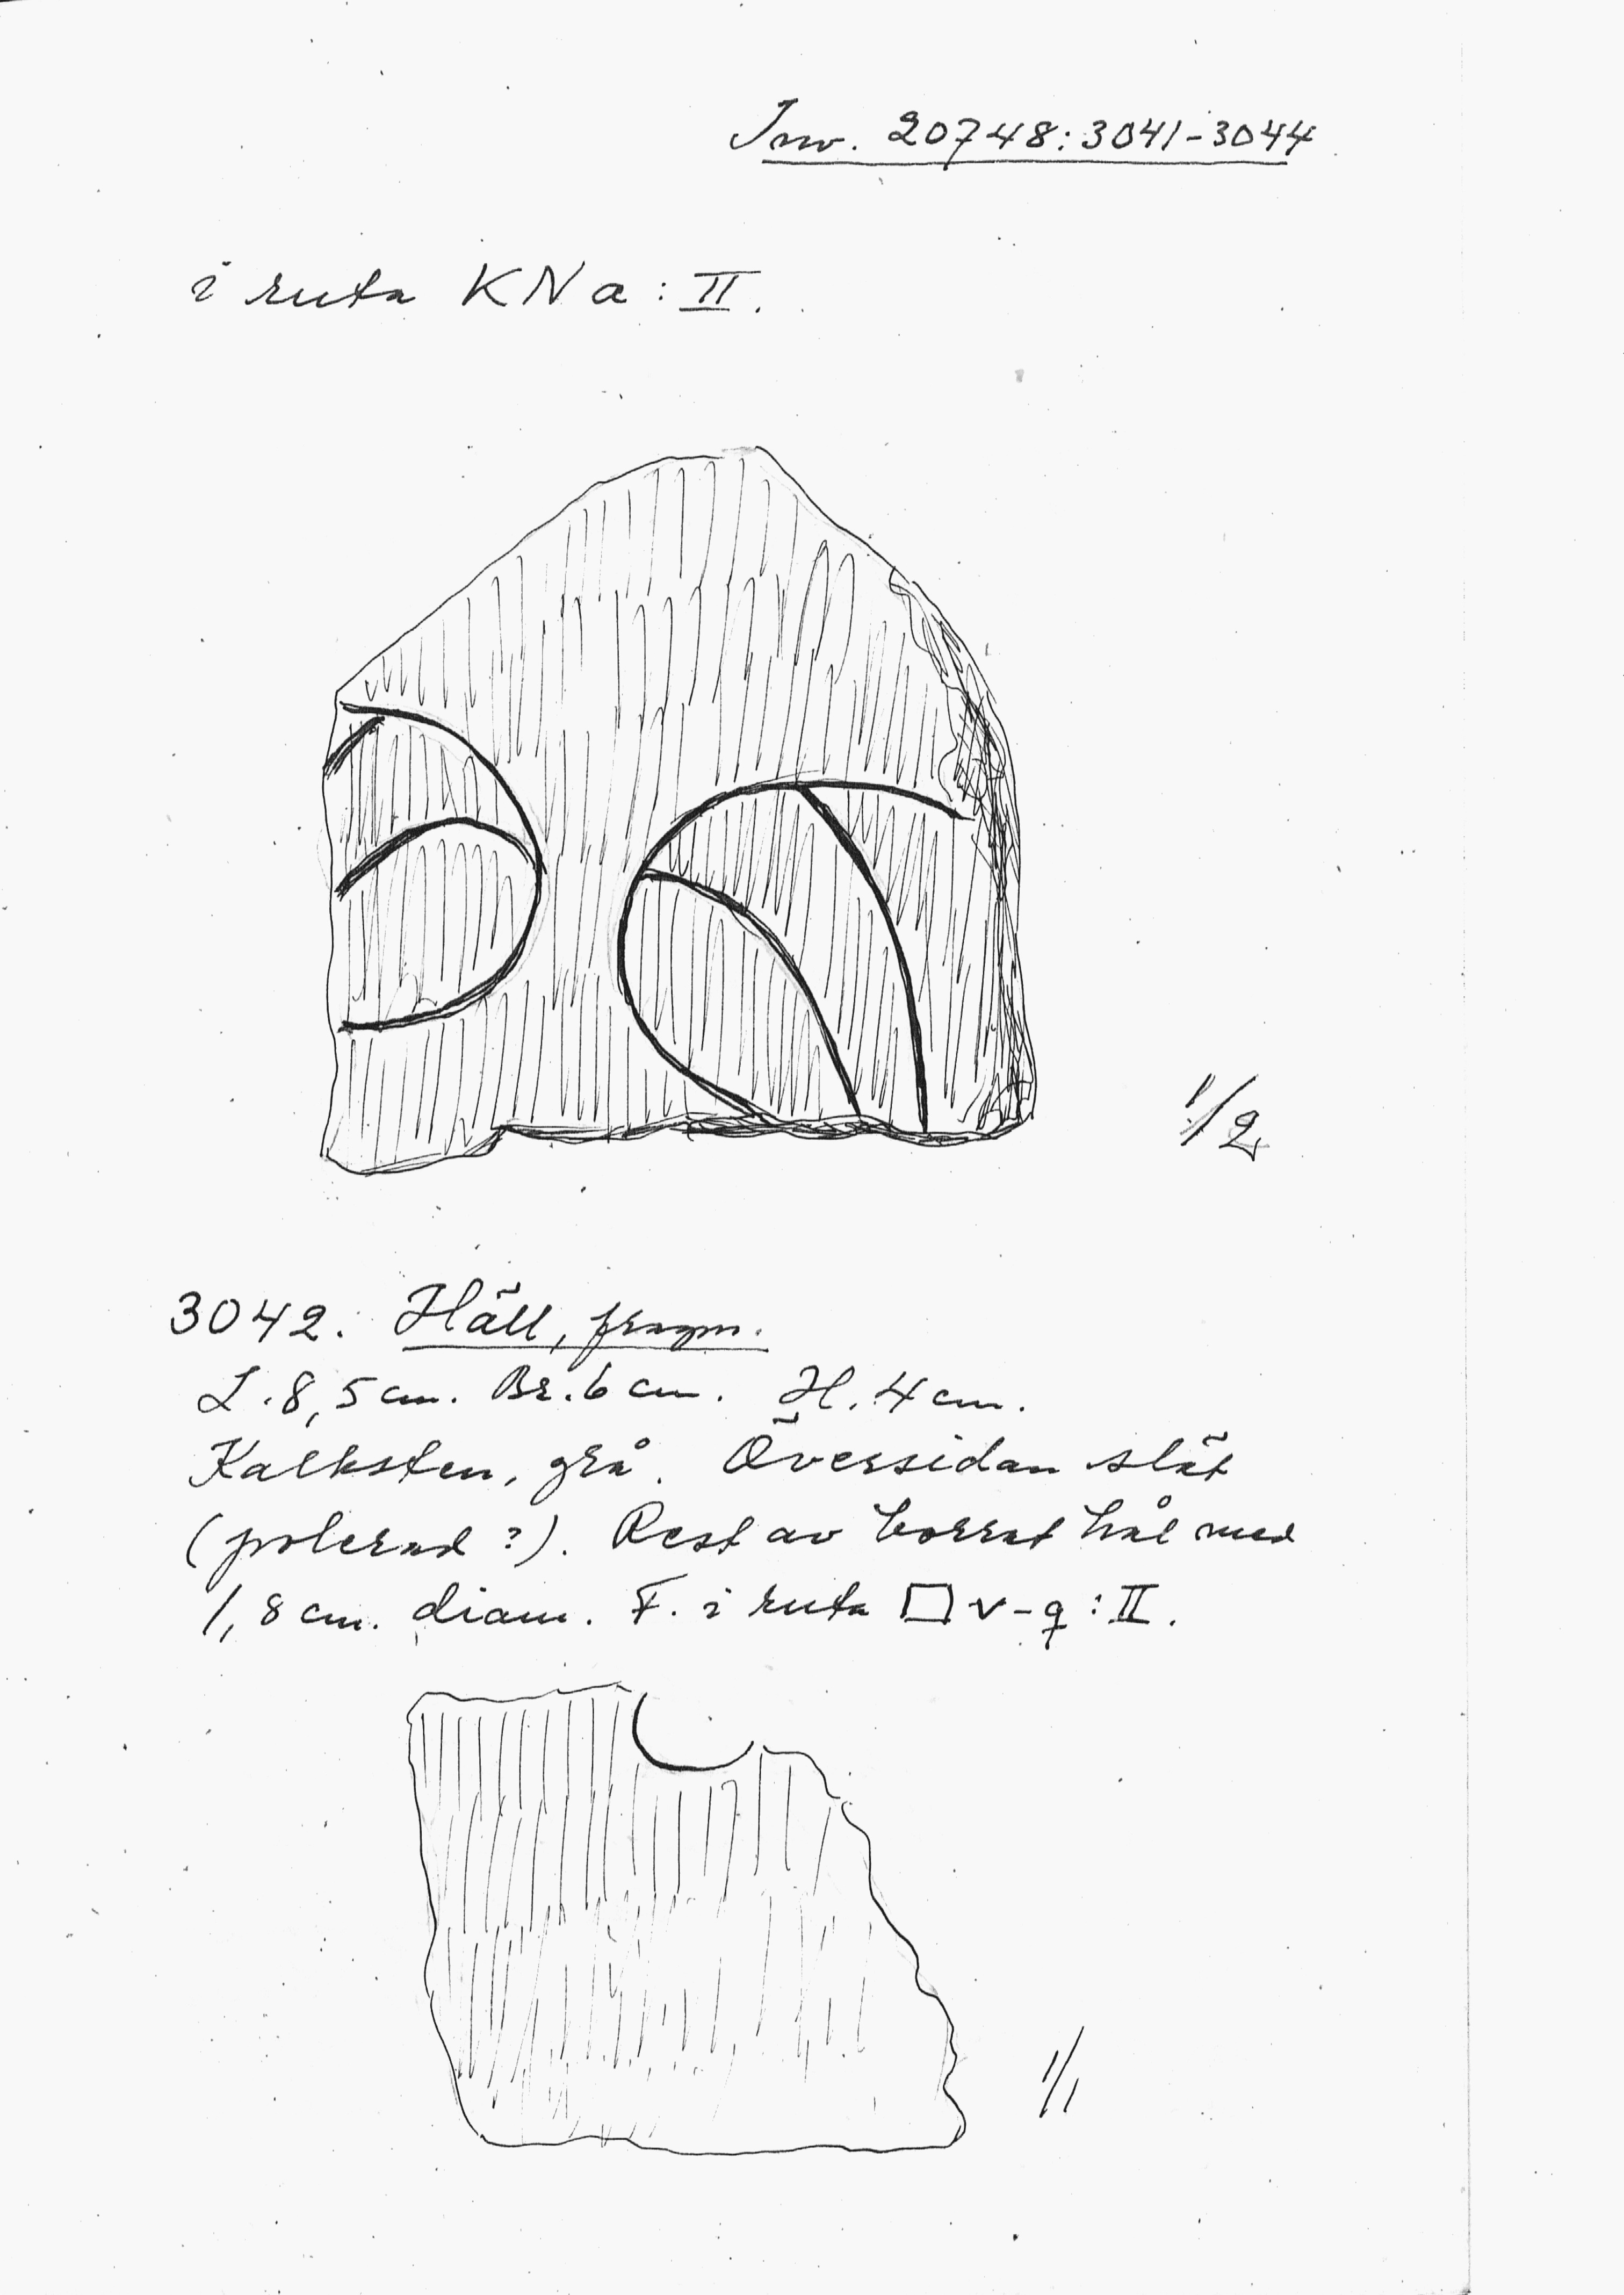 Inv. 20748:3041-3044
i ruta KNa:II.
1/2
3042. Häll, fragm.
L.8,5cm. Br.6cm. H.4cm.
Kalksten, grå. Översidan slät
(polerad?). Rest av borrat hål med
1,8cm. diam. F. i ruta □v-q:II.
1/1